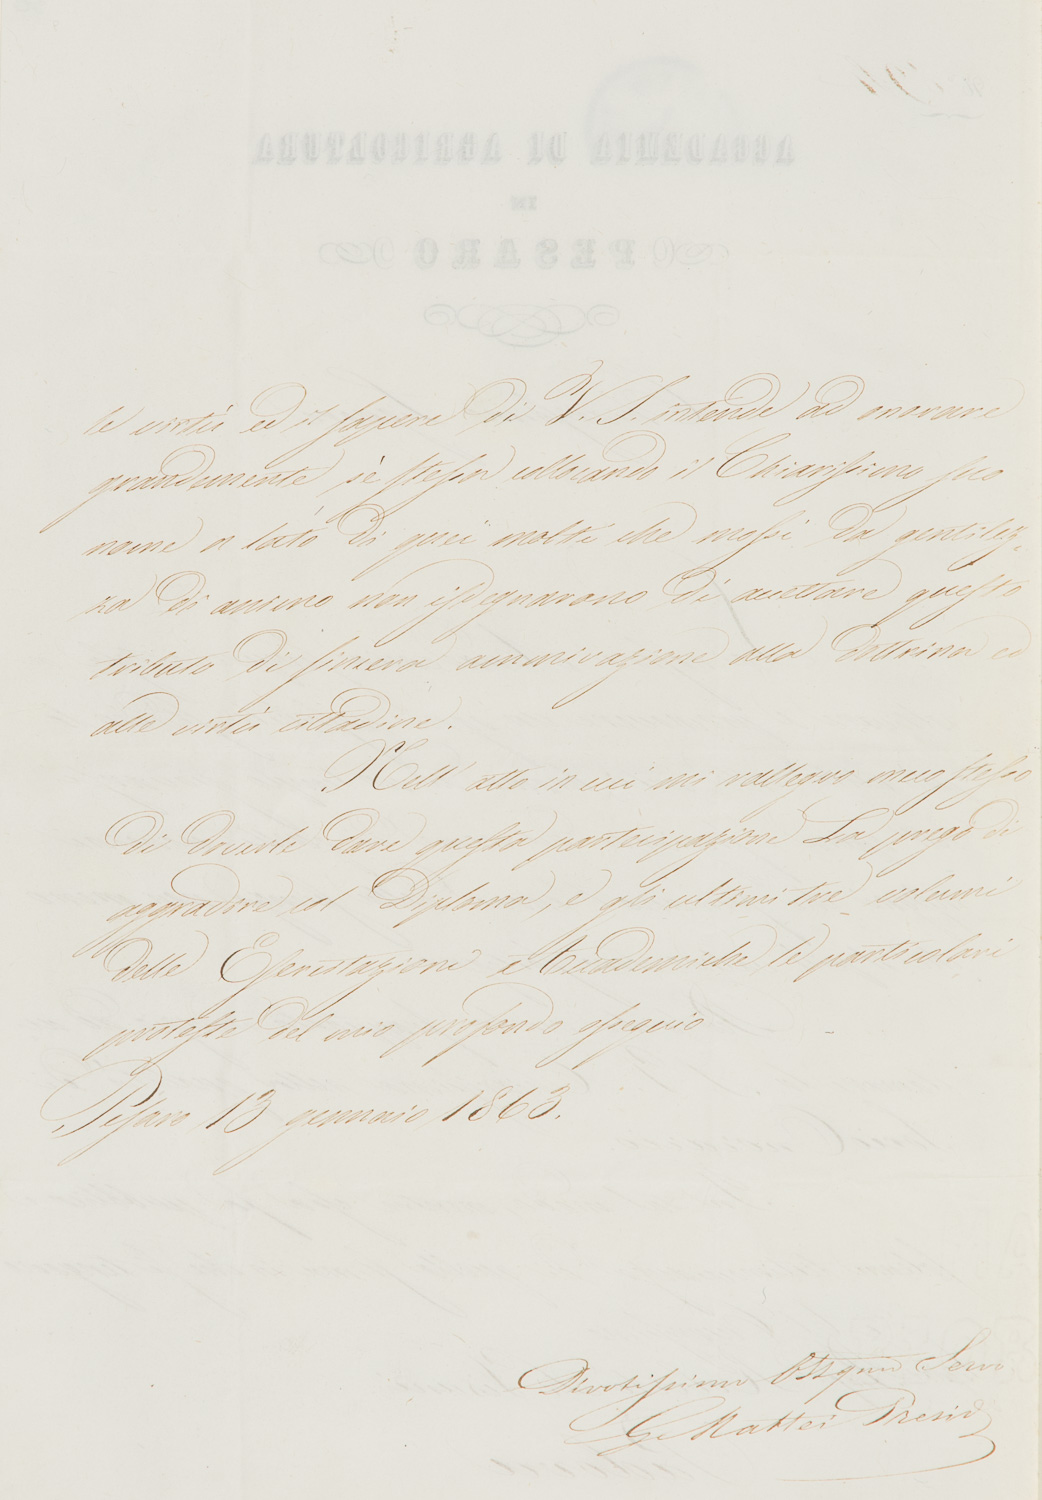 le virtù ed il sapere di V. S. intende ad onorare
grandemente sè stessa collocando il Chiarissimo suo
nome a lato di quei molti che mossi da gentilez-
za di animo non isdegnarono di accettare questo
tributo di sincera ammirazione alla dottrina ed
alle virtù cittadine.
Nell' atto in cui mi rallegro meco stesso
di doverle dare questa partecipazione La prego di
aggradire col Diploma, e gli ultimi tre volumi
delle Esercitazioni Accademiche le particolari
proteste del mio profondo ossequio
Pesaro 13 gennaio 1863.
Divotissimo Ossqmo Servo
G. Mattei Presid
ACCADEMIA DI AGRICOLTURA
IN
PESARO